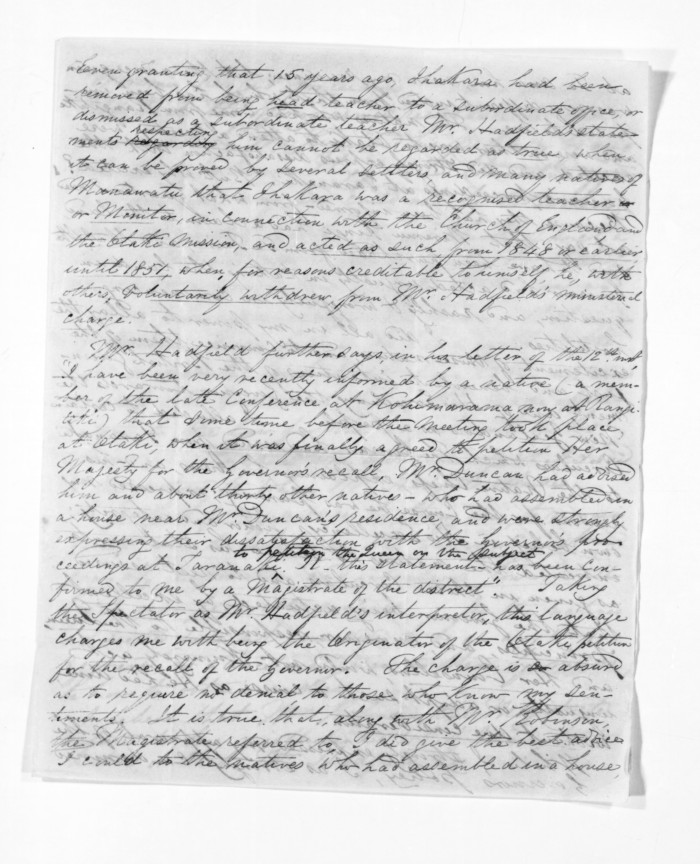 Even granting that 15 years ago, Ihakara had been
removed from being head teacher to a subordinate office, or
dismissed as a subordinate teacher Mr. Hadfield's state-
respecting
ments regarding him cannot be regarded as true, when
it can be proved by several settlers and many natives of
Manawatu that Ihakara was a recognised teacher
or Monitor, in connection with the Church of England and
the Otaki Mission, - and acted as such from 1848 or earlier
until 1851, when, for reasons creditable to himself, he, with
others, voluntarily withdrew from Mr. Hadfield's ministerial
charge.
Mr. Hadfield further says, in his letter of the 12th inst
I have been very recently informed by a native (a mem-
ber of the late Conference at Kohimarama now at Rangi-
tiki) that some time before the meeting took place
at Otaki when it was finally agreed to petition Her
Majesty for the Governor's recall, Mr. Duncan had advised
him and about thirty other natives - who had assembled in
a house near Mr Duncan's residence and were strongly
expressing their dissatisfaction with the Governors pro-
to petition the Queen on the subject
ceedings at Taranaki. - this statement has been con-
firmed to me by a Magistrate of the district". Taking
the Spectator as Mr. Hadfield's interpretor, this language
charges me with being the Originator of the Otaki petition
for the recall of the Governor. The charge is so absurd
as to require no denial to those who know my sen-
timents. It is true that, along with Mr. Robinson,
the Magistrate referred to, I did give the best advice
I could to the natives who had assembled in a house,